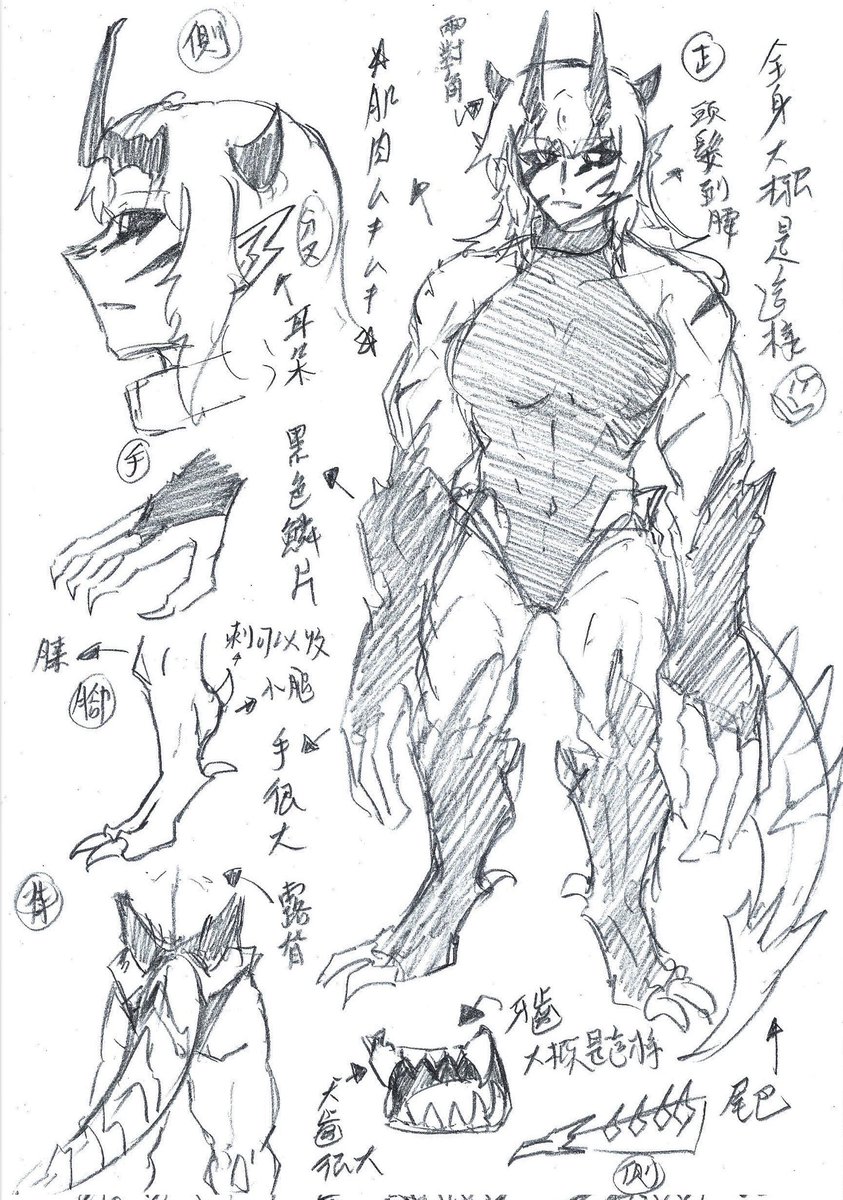 側
兩對角
正
全身大概是這樣
頭髮到腰
☆肌肉ムキムキ☆
分叉
耳朵
手
黑色鱗片
刺可以收
膝
腳
小腿
手很大
背
露背
牙齒
大概是這樣
犬齒很大
尾巴
側